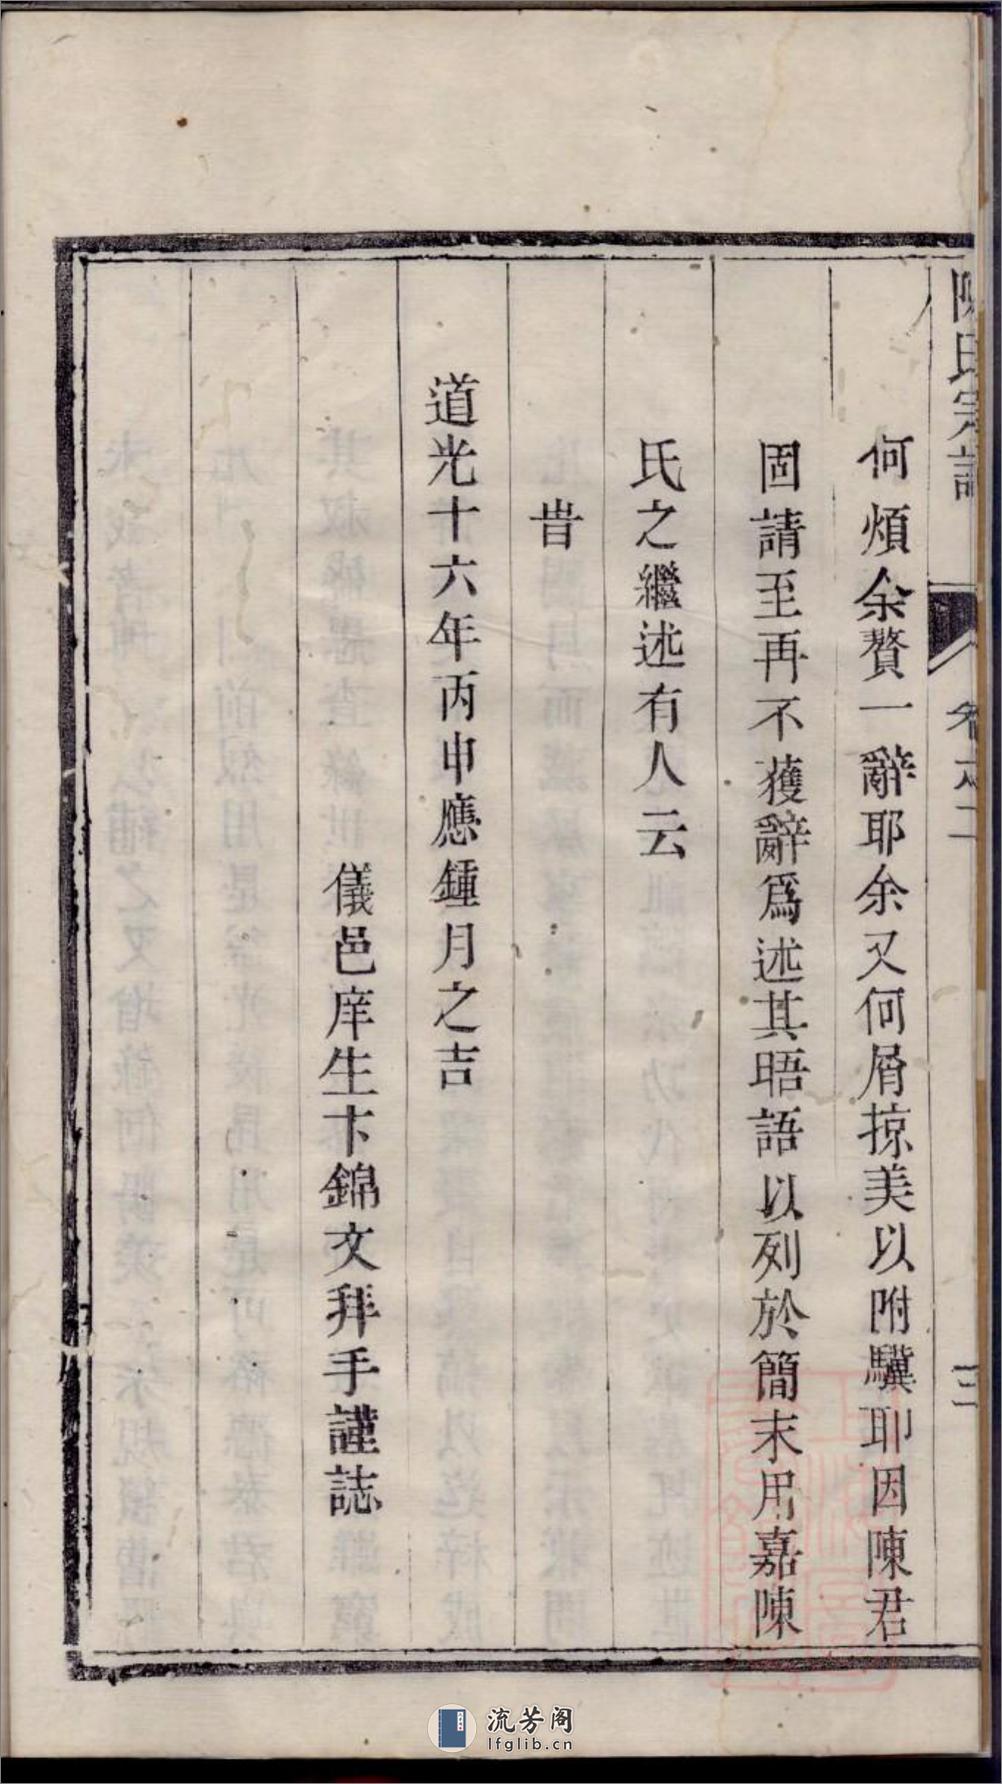 何煩余贅一辭耶余又何屑掠美以附驥耶因陳君
固請至再不獲辭爲述其晤語以列於簡末用嘉陳
氏之繼述有人云
旹
道光十六年丙申應鍾月之吉
儀邑庠生卞錦文拜手謹誌
陳氏宗譜
卷之二
三
流芳阁
lfglib.cn